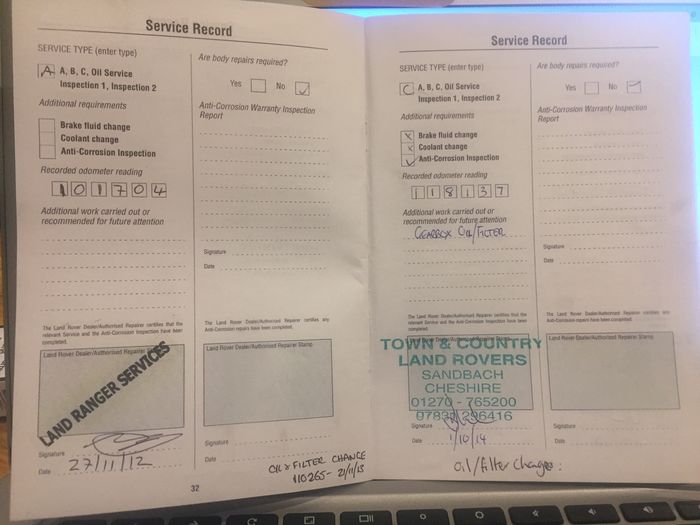 Service Record
SERVICE TYPE (enter type)
A A, B, C, Oil Service
Inspection 1, Inspection 2
Additional requirements
Brake fluid change
Coolant change
Anti-Corrosion Inspection
Recorded odometer reading
101704
Additional work carried out or
recommended for future attention
The Land Rover Dealer/Authorised Repairer certifies that the
relevant Service and the Anti-Corrosion Inspection have been
completed.
Land Rover Dealer/Authorised Repairer
LAND RANGER SERVICES
Signature
Date 27/11/12
Are body repairs required?
Yes No ✓
Anti-Corrosion Warranty Inspection
Report
Signature
Date
The Land Rover Dealer/Authorised Repairer certifies any
Anti-Corrosion repairs have been completed.
Land Rover Dealer/Authorised Repairer Stamp
Signature
Date
OIL & FILTER CHANGE
110265 - 21/11/13
32
Service Record
SERVICE TYPE (enter type)
C A, B, C, Oil Service
Inspection 1, Inspection 2
Additional requirements
X Brake fluid change
X Coolant change
✓ Anti-Corrosion Inspection
Recorded odometer reading
118137
Additional work carried out or
recommended for future attention
GEARBOX OIL/FILTER
The Land Rover Dealer/Authorised Repairer certifies that the
relevant Service and the Anti-Corrosion Inspection have been
completed
TOWN & COUNTRY
LAND ROVERS
SANDBACH
CHESHIRE
01270 - 765200
296416
Signature
Date 1/10/14
Are body repairs required?
Yes No
Anti-Corrosion Warranty Inspection
Report
Signature
Date
The Land Rover Dealer/Authorised Repairer certifies any
Anti-Corrosion repairs have been completed.
Land Rover Dealer/Authorised Repairer Stamp
Signature
Date
Oil/filter change: